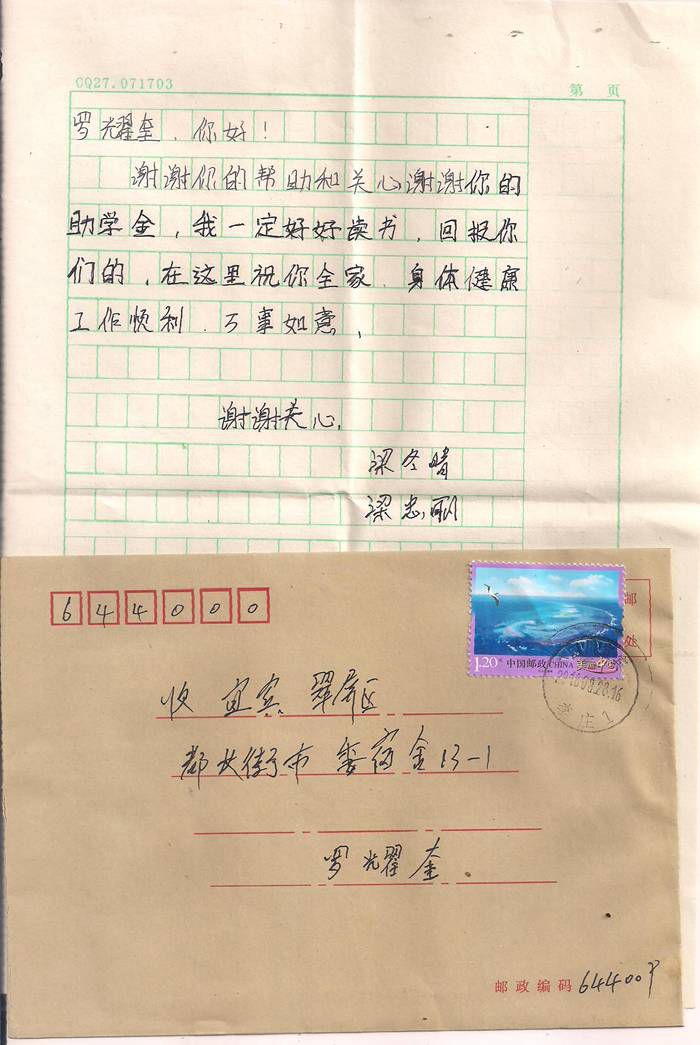 CQ27.071703
第 页
罗光耀奎.你好!
谢谢你的帮助和关心谢谢你的
助学金,我一定好好读书,回报你
们的,在这里祝你全家.身体健康
工作顺利.万事如意,
谢谢关心,
梁冬晴
梁忠丽
644000
1.20 中国邮政 CHINA 美丽中国
邮
处
2016.09.28.16
李庄
收 宜宾翠屏区
都长街市委宿舍13-1
罗光耀奎
邮政编码 644007